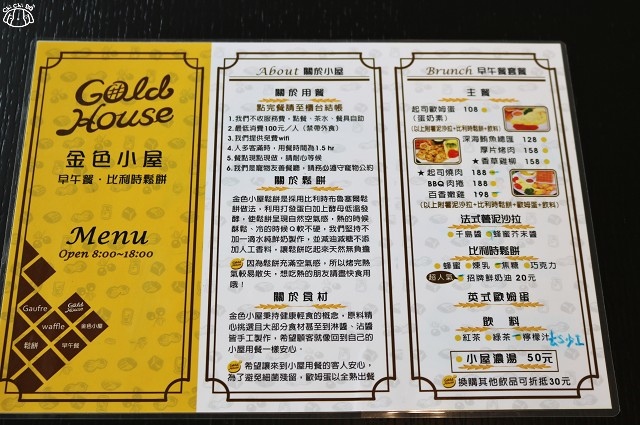 Gold
House
金色小屋
早午餐・比利時鬆餅
Menu
Open 8:00~18:00
Gaufre
Gold House
waffle
金色小屋
鬆餅
早午餐
About 關於小屋
關於用餐
點完餐請至櫃台結帳
1.我們不收服務費，點餐、茶水、餐具自助
2.最低消費100元/人（禁帶外食）
3.我們提供免費wifi
4.人多客滿時，用餐時間為1.5 hr
5.餐點現點現做，請耐心等候
6.我們是寵物友善餐廳，請務必遵守寵物公約
關於鬆餅
金色小屋鬆餅是採用比利時布魯塞爾鬆
餅做法，利用打發蛋白加上酵母低溫發
酵，使鬆餅呈現自然空氣感，熱的時候
酥鬆、冷的時候Q軟不硬，我們堅持不
加一滴水純鮮奶製作，並減油減糖不添
加人工香料，讓鬆餅吃起來天然無負擔
因為鬆餅充滿空氣感，所以烤完熱
氣較易散失，想吃熱的朋友請盡快食用
哦！
關於食材
金色小屋秉持健康輕食的概念，原料精
心挑選且大部分食材甚至到淋醬、沾醬
皆手工製作，希望顧客就像回到自己的
小屋用餐一樣安心。
希望讓來到小屋用餐的客人安心，
為了避免細菌殘留，歐姆蛋以全熟出餐
Brunch 早午餐套餐
主餐
起司歐姆蛋 108
(蛋奶素)
(以上附薯泥沙拉+比利時鬆餅+飲料)
深海鮪魚總匯 128
厚片烤肉 158
★香草雞柳 158
★起司燒肉 188
BBQ肉捲 188
百香嫩雞 198
(以上附薯泥沙拉+比利時鬆餅+歐姆蛋+飲料)
法式薯泥沙拉
千島醬 蜂蜜芥末醬
比利時鬆餅
蜂蜜 煉乳 焦糖 巧克力
超人氣 招牌鮮奶油 20元
英式歐姆蛋
飲料
紅茶 綠茶 檸檬汁
小屋濃湯 50元
換購其他飲品可折抵30元